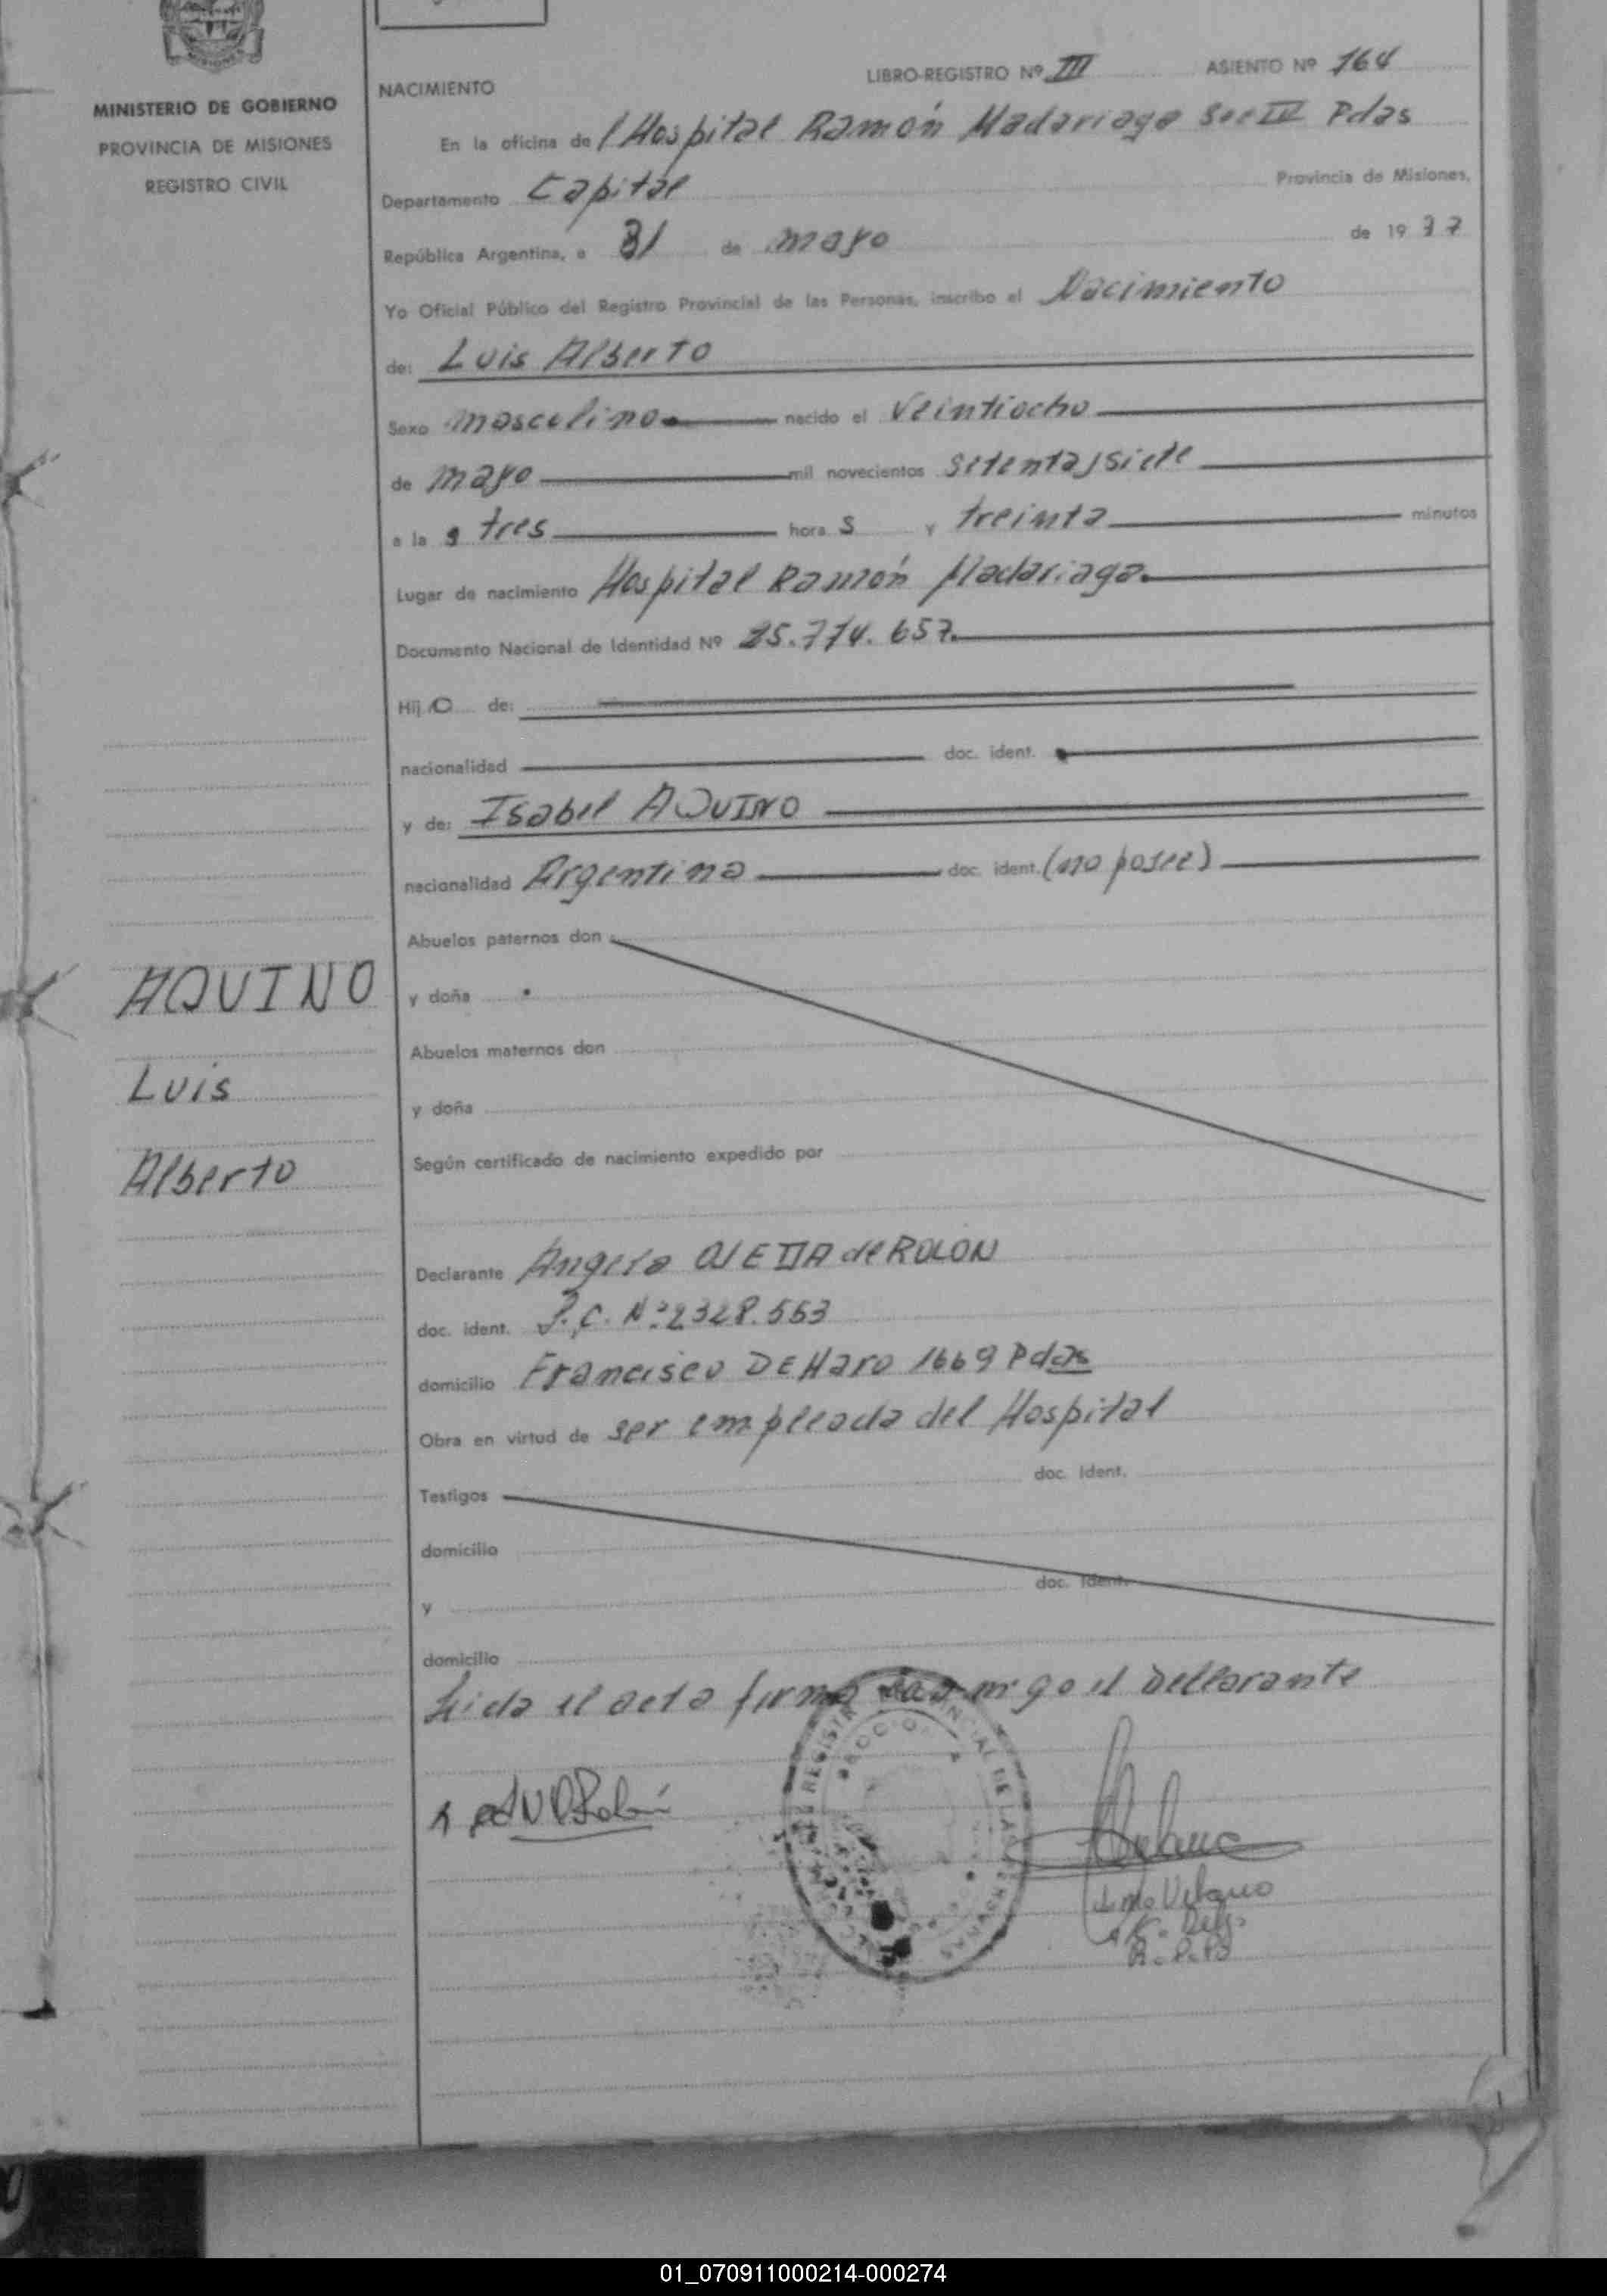 MISIONES
MINISTERIO DE GOBIERNO
PROVINCIA DE MISIONES
REGISTRO CIVIL
NACIMIENTO
LIBRO-REGISTRO Nº III ASIENTO Nº 164
En la oficina de l Hospital Ramón Madariaga Sec IV Pdas
Departamento Capital Provincia de Misiones,
República Argentina, a 31 de mayo de 19 77
Yo Oficial Público del Registro Provincial de las Personas, inscribo el Nacimiento
de: Luis Alberto
Sexo masculino nacido el Veintiocho
de mayo mil novecientos setentaysiete
a la s tres hora s y treinta minutos
Lugar de nacimiento Hospital Ramón Madariaga.
Documento Nacional de Identidad Nº 25.774.657.
Hij o de:
nacionalidad doc. ident.
y de: Isabel AQUINO
nacionalidad Argentina doc. ident. (no posee)
Abuelos paternos don
y doña
Abuelos maternos don
y doña
AQUINO
Luis
Alberto
Según certificado de nacimiento expedido por
Declarante Angela de ROLON
doc. ident. C. Nº 2328.553
domicilio Francisco DE Haro 1669 Pdas
Obra en virtud de ser empleada del Hospital
doc. ident.
Testigos
domicilio
doc. ident.
y
domicilio
Leida el acta firma conmigo el Declarante
01_070911000214-000274